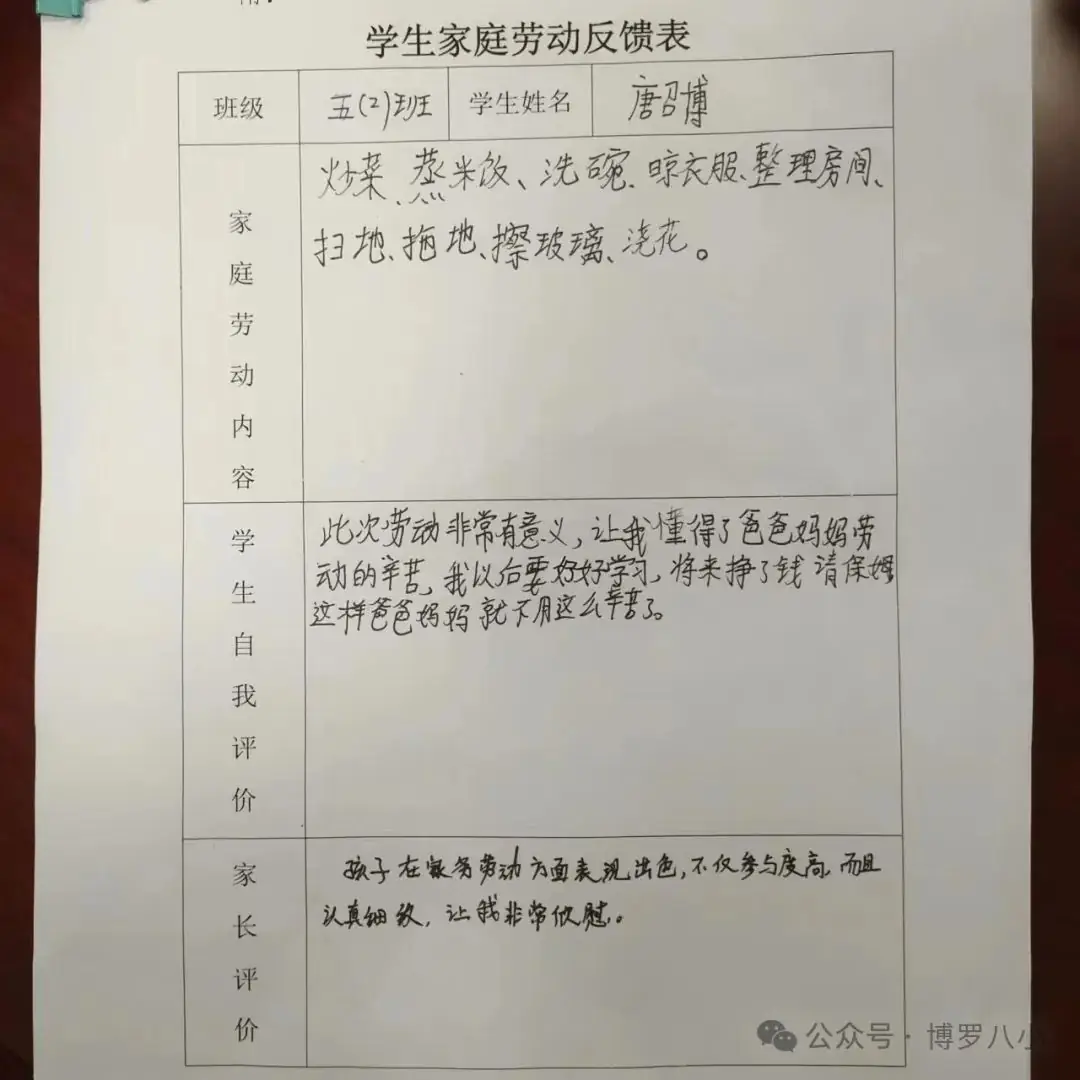 学生家庭劳动反馈表
班级 五(2)班 学生姓名 唐召博
家庭劳动内容
炒菜、蒸米饭、洗碗、晾衣服、整理房间、
扫地、拖地、擦玻璃、浇花。
学生自我评价
此次劳动非常有意义,让我懂得了爸爸妈妈劳
动的辛苦,我以后要好好学习,将来挣了钱请保姆
这样爸爸妈妈就不用这么辛苦了。
家长评价
孩子在家务劳动方面表现出色,不仅参与度高,而且
认真细致,让我非常欣慰。
公众号·博罗八小